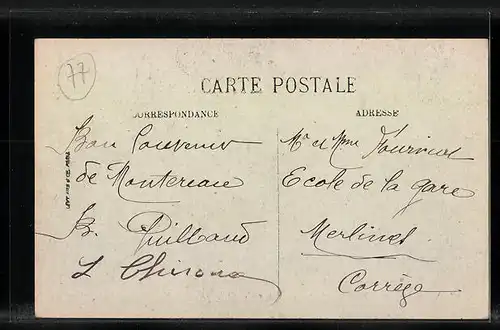 77
CARTE POSTALE
CORRESPONDANCE
ADRESSE
Bon Souvenir
de Montereau
B. Guilbaud
Mr et Mme
Ecole de la gare
Merlines
Corrèze